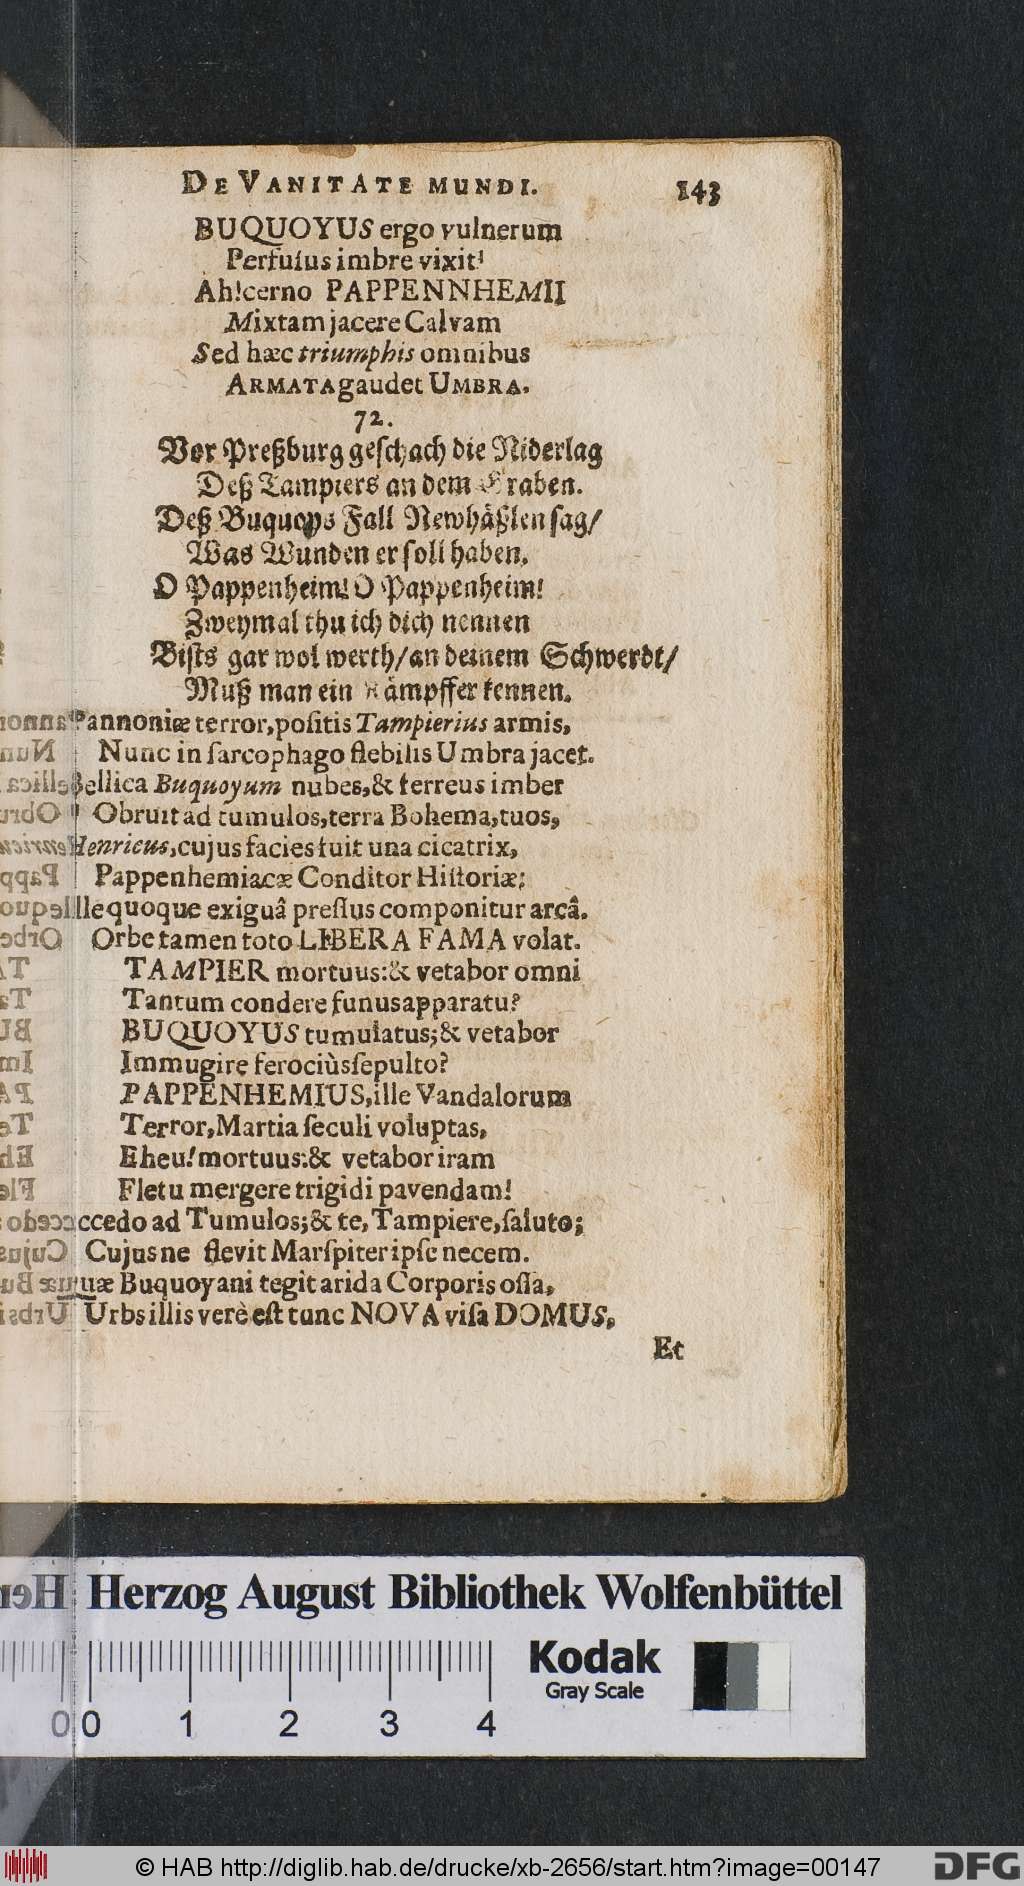 DE VANITATE MUNDI. 143
BUQUOYUS ergo vulnerum
Perfusus imbre vixit!
Ah! cerno PAPPENNHEMII
Mixtam jacere Calvam
Sed hæc triumphis omnibus
ARMATA gaudet UMBRA.
72.
Vor Preßburg geschach die Niderlag
Deß Tampiers an dem Graben.
Deß Buquoys Fall Newhäßlen sag/
Was Wunden er soll haben.
O Pappenheim! O Pappenheim!
Zweymal thu ich dich nennen
Bists gar wol werth/ an deinem Schwerdt/
Muß man ein Kämpffer kennen.
Pannoniæ terror, positis Tampierius armis,
Nunc in sarcophago flebilis Umbra jacet.
Bellica Buquoyum nubes, & ferreus imber
Obruit ad tumulos, terra Bohema, tuos,
Henricus, cujus facies fuit una cicatrix,
Pappenhemiacæ Conditor Historiæ;
Ille quoque exiguâ pressus componitur arcâ.
Orbe tamen toto LIBERA FAMA volat.
TAMPIER mortuus: & vetabor omni
Tantum condere funus apparatu?
BUQUOYUS tumulatus; & vetabor
Immugire ferociùs sepulto?
PAPPENHEMIUS, ille Vandalorum
Terror, Martia seculi voluptas,
Eheu! mortuus: & vetabor iram
Fletu mergere frigidi pavendam!
ccedo ad Tumulos; & te, Tampiere, saluto;
Cujus ne flevit Marspiter ipse necem.
uæ Buquoyani tegit arida Corporis ossa,
Urbs illis verè est tunc NOVA visa DOMUS,
Et
Herzog August Bibliothek Wolfenbüttel
Kodak
Gray Scale
0 1 2 3 4
© HAB http://diglib.hab.de/drucke/xb-2656/start.htm?image=00147
DFG